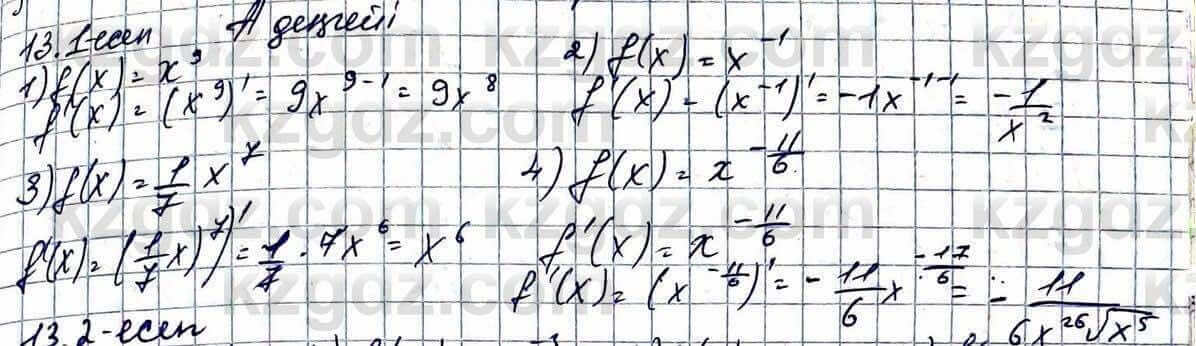 13.1-есен А деңгейі
1) f(x) = x⁹
f'(x) = (x⁹)' = 9x⁹⁻¹ = 9x⁸
2) f(x) = x⁻¹
f'(x) = (x⁻¹)' = -1x⁻¹⁻¹ = -1/x²
3) f(x) = 1/7 x⁷
f'(x) = (1/7 x)⁷)' = 1/7 · 7x⁶ = x⁶
4) f(x) = x^(-11/6)
f'(x) = x^(-11/6)
f'(x) = (x^(-11/6))' = -11/6 x^(-17/6) = -11/(6x²⁶√x⁵)
13.2-есеп
kzgdz.com